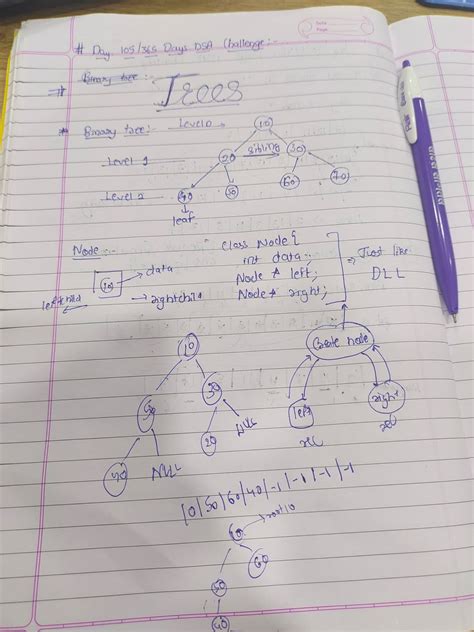 # Day 105/365 Days DSA Challenge:-
Binary tree:-
⇒ Trees
* Binary tree:- Level 0 10
Level 1 20 sibling 30
Level 2 40 50 60 70
leaf
Node:-
Class Node {
int data;
Node * left;
Node * right;
⇒ Just like
DLL
10 → data
leftchild → rightchild
10
Create node
50
NULL
20
NULL
left
right
rec
rec
10/50/60/40/-1/-1/-1/-1
10 root
60
50
40